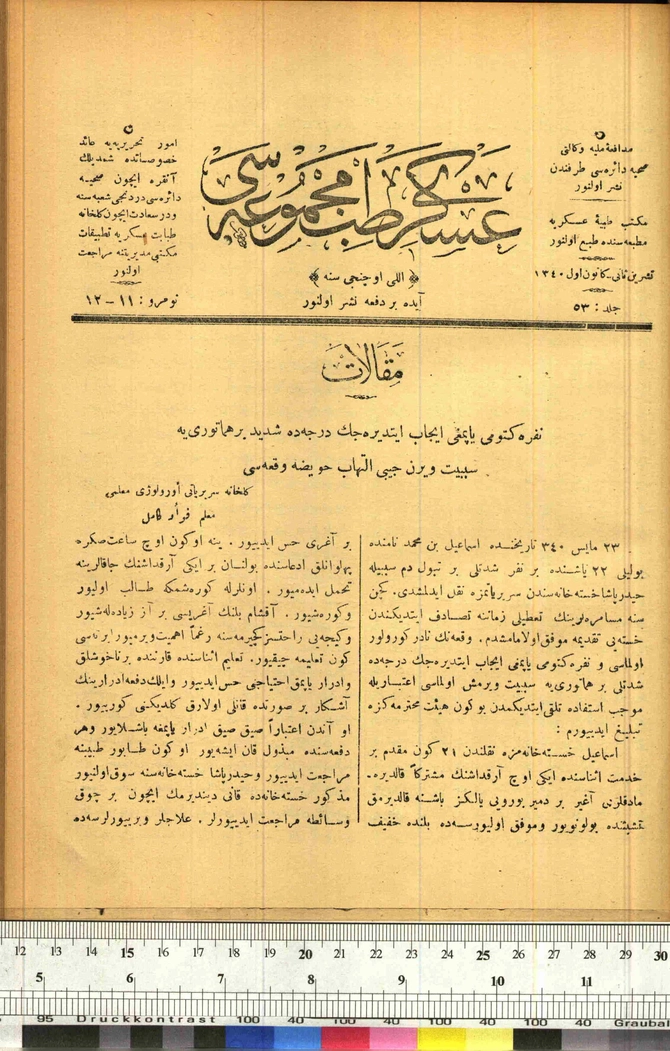 مدافعهٔ ملیه وکالتی
صحیه دائره‌سی طرفندن
نشر اولنور
مکتب طبیهٔ عسکریه
مطبعه‌سنده طبع اولنور
تشرین ثانی - کانون اول ١٣٤٠
جلد : ٥٣
عسکری طب مجموعه‌سی
﴿ اللی اوچنجی سنه ﴾
آیده بر دفعه نشر اولنور
امور تحریریه‌یه عائد
خصوصاتده شمدیلك
آنقره ایچون صحیه
دائره‌سی دردنجی شعبه‌سنه
ودرسعادت ایچون کلخانه
طبابت عسکریه تطبیقات
مکتبی مدیریتنه مراجعت
اولنور
نومرو : ١١ – ١٢
مقالات
نفره‌کتومی یاپمغی ایجاب ایتدیره‌جك درجه‌ده شدید بر هماتوری‌یه
سببیت ویرن جیبی التهاب حویضه وقعه‌سی
کلخانه سریریاتی اورولوژی معلمی
معلم فؤاد کامل
٢٣ مایس ٣٤٠ تاریخنده اسماعیل بن محمد نامنده
بولیلی ٢٢ یاشنده بر نفر شدتلی بر تبول دم سببیله
حیدرپاشا خسته‌خانه‌سندن سریریاتمزه نقل ایدلشدی. کچن
سنه مسامره‌لرینك تعطیلی زماننه تصادف ایتدیکندن
خسته‌یی تقدیمه موفق اولامامشدم. وقعه‌نك نادر کورولور
اولماسی و نفره‌کتومی یاپمغی ایجاب ایتدیره‌جك درجه‌ده
شدتلی بر هماتوری‌یه سببیت ویرمش اولماسی اعتباریله
موجب استفاده تلقی ایتدیکمدن بوکون هیئت محترمه‌کزه
تبلیغ ایدییورم :
اسماعیل خسته‌خانه‌مزه نقلندن ٢١ کون مقدم بر
خدمت اثناسنده ایکی اوچ آرقداشنك مشترکاً قالدیره‌-
مادقلری آغیر بر دمیر بورویی یالکز باشنه قالدیرمق
تشبثنده بولونویور وموفق اولیورسه‌ده بلنده خفیف
بر آغری حس ایدییور . ینه اوکون اوچ ساعت صکره
پهلوانلق ادعاسنده بولنان بر ایکی آرقداشنك جاقالرینه
تحمل ایده‌میور . اونلرله کوره‌شمکه طالب اولیور
وکوره‌شیور . آقشام بلنك آغریسی بر آز زیاده‌له‌شیور
وکیجه‌یی راحتسز کچیرمه‌سنه رغماً اهمیت ویرمیور ایرتاسی
کون تعلیمه چیقیور. تعلیم اثناسنده قارننده بر ناخوشلق
وادرار یاپمق احتیاجنی حس ایدییور وایلك دفعه ادرارینك
آشکار بر صورتده قانلی اولارق کلدیکنی کورییور .
او آندن اعتباراً صیق صیق ادرار یاپمغه باشلایور وهر
دفعه‌سنده مبذول قان ایشه‌یور او کون طابور طبیبنه
مراجعت ایدییور وحیدرپاشا خسته‌خانه‌سنه سوق اولنیور
مذکور خسته‌خانه‌ده قانی دیندیرمك ایچون بر چوق
وسائطه مراجعت ایدییورلر . علاجلر ویرییورلرسه‌ده
12 13 14 15 16 17 18 19 20 21 22 23 24 25 26 27 28 29 30
5 6 7 8 9 10 11
95 Druckkontrast 100 40 100 40 100 40 100 40 Graubal